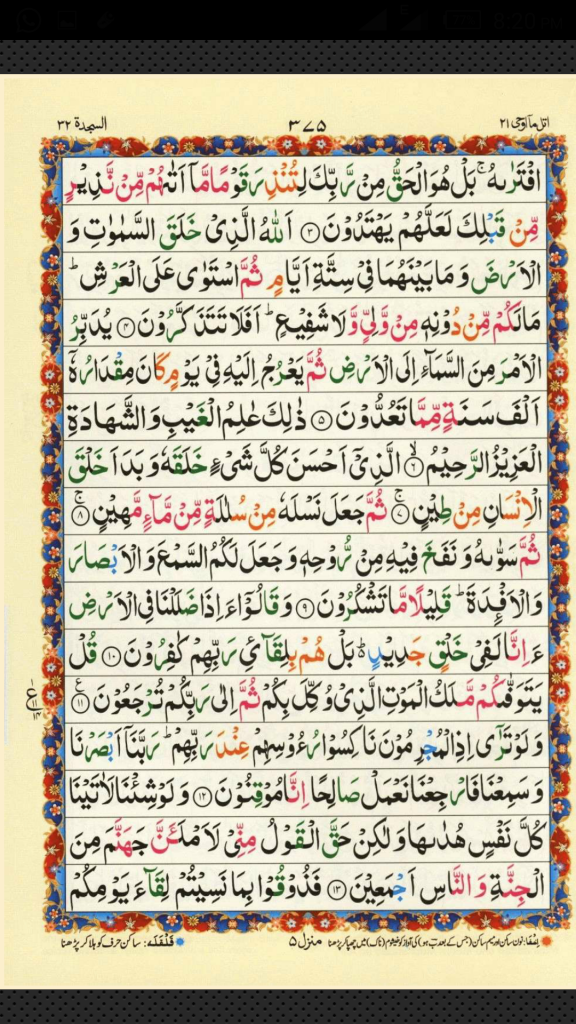 8:20
اتل مآ اوحی ۲۱
۳۷۵
السجدة ۳۲
افْتَرٰىهُ ۚ بَلْ هُوَ الْحَقُّ مِنْ رَّبِّكَ لِتُنْذِرَ قَوْمًا مَّاۤ اَتٰىهُمْ مِّنْ نَّذِیْرٍ
مِّنْ قَبْلِكَ لَعَلَّهُمْ یَهْتَدُوْنَ ﴿۳﴾ اَللّٰهُ الَّذِیْ خَلَقَ السَّمٰوٰتِ وَ
الْاَرْضَ وَ مَا بَیْنَهُمَا فِیْ سِتَّةِ اَیَّامٍ ثُمَّ اسْتَوٰی عَلَی الْعَرْشِ ؕ
مَا لَكُمْ مِّنْ دُوْنِهٖ مِنْ وَّلِیٍّ وَّ لَا شَفِیْعٍ ؕ اَفَلَا تَتَذَكَّرُوْنَ ﴿۴﴾ یُدَبِّرُ
الْاَمْرَ مِنَ السَّمَآءِ اِلَی الْاَرْضِ ثُمَّ یَعْرُجُ اِلَیْهِ فِیْ یَوْمٍ كَانَ مِقْدَارُهٗۤ
اَلْفَ سَنَةٍ مِّمَّا تَعُدُّوْنَ ﴿۵﴾ ذٰلِكَ عٰلِمُ الْغَیْبِ وَ الشَّهَادَةِ
الْعَزِیْزُ الرَّحِیْمُ ۙ﴿۶﴾ الَّذِیْۤ اَحْسَنَ كُلَّ شَیْءٍ خَلَقَهٗ وَ بَدَاَ خَلْقَ
الْاِنْسَانِ مِنْ طِیْنٍ ۚ﴿۷﴾ ثُمَّ جَعَلَ نَسْلَهٗ مِنْ سُلٰلَةٍ مِّنْ مَّآءٍ مَّهِیْنٍ ۚ﴿۸﴾
ثُمَّ سَوّٰىهُ وَ نَفَخَ فِیْهِ مِنْ رُّوْحِهٖ وَ جَعَلَ لَكُمُ السَّمْعَ وَ الْاَبْصَارَ
وَ الْاَفْـِٕدَةَ ؕ قَلِیْلًا مَّا تَشْكُرُوْنَ ﴿۹﴾ وَ قَالُوْۤا ءَاِذَا ضَلَلْنَا فِی الْاَرْضِ
ءَاِنَّا لَفِیْ خَلْقٍ جَدِیْدٍ ؕ۬ بَلْ هُمْ بِلِقَآئِ رَبِّهِمْ كٰفِرُوْنَ ﴿۱۰﴾ قُلْ
یَتَوَفّٰىكُمْ مَّلَكُ الْمَوْتِ الَّذِیْ وُكِّلَ بِكُمْ ثُمَّ اِلٰی رَبِّكُمْ تُرْجَعُوْنَ ﴿۱۱﴾
وَ لَوْ تَرٰۤی اِذِ الْمُجْرِمُوْنَ نَاكِسُوْا رُءُوْسِهِمْ عِنْدَ رَبِّهِمْ ؕ رَبَّنَاۤ اَبْصَرْنَا
وَ سَمِعْنَا فَارْجِعْنَا نَعْمَلْ صَالِحًا اِنَّا مُوْقِنُوْنَ ﴿۱۲﴾ وَ لَوْ شِئْنَا لَاٰتَیْنَا
كُلَّ نَفْسٍ هُدٰىهَا وَ لٰكِنْ حَقَّ الْقَوْلُ مِنِّیْ لَاَمْلَـَٔنَّ جَهَنَّمَ مِنَ
الْجِنَّةِ وَ النَّاسِ اَجْمَعِیْنَ ﴿۱۳﴾ فَذُوْقُوْا بِمَا نَسِیْتُمْ لِقَآءَ یَوْمِكُمْ
منزل ۵
قَلْقَلَہ: ساکن حرف کو ہلا کر پڑھنا